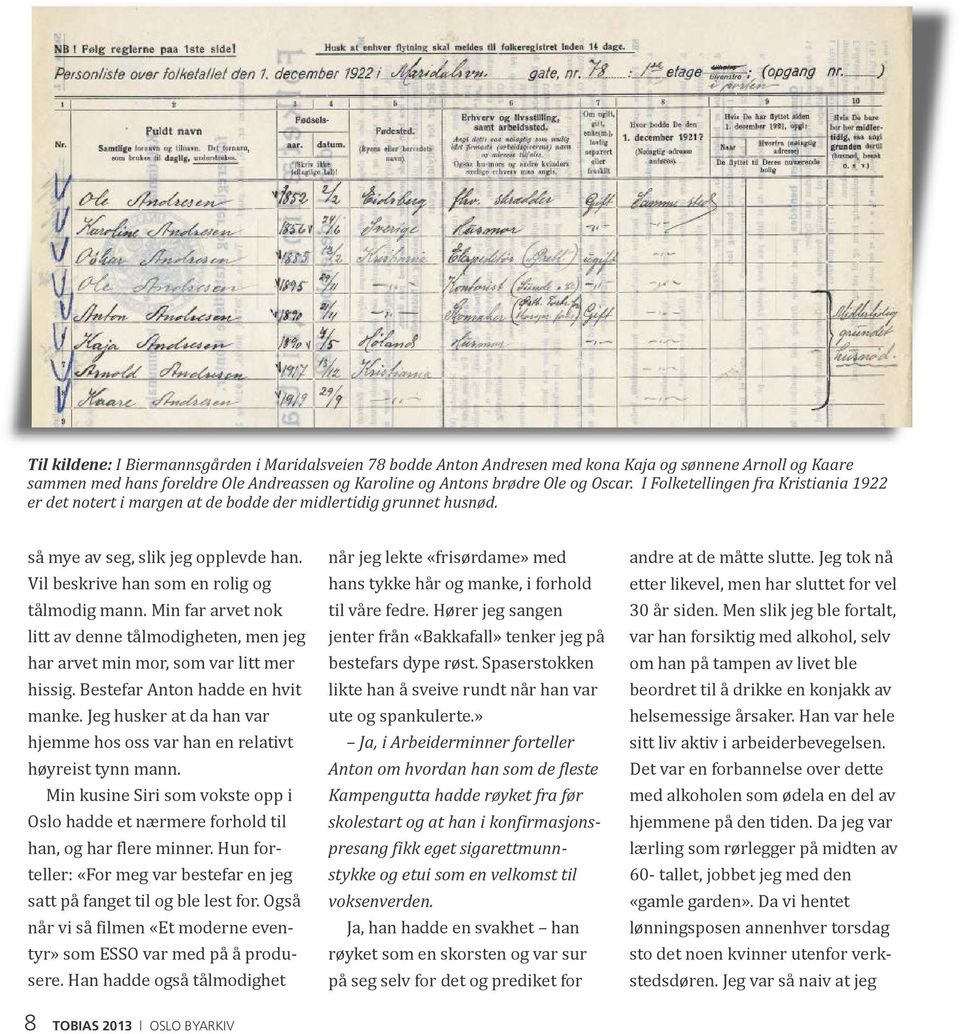 NB! Følg reglerne paa 1ste side!
Husk at enhver flytning skal meldes til folkeregistret inden 14 dage.
Personliste over folketallet den 1. december 1922 i Maridalsvn. gate, nr. 78 : 1ste etage i porten ; (opgang nr. )
1 2 3 4 5 6 7 8 9 10
Nr.
Fuldt navn
Samtlige fornavn og tilnavn. Det fornavn,
som brukes til daglig, understrekes.
Fødsels-
aar. datum.
(Skriv ikke
Fødested.
(Byens eller herredets
navn)
Erhverv og livsstilling,
samt arbeidssted.
Om ugift,
gift,
separert
eller
fraskilt
Hvor bodde De den
1. december 1921?
(Nøiagtig adresse
anføres).
Hvis De har flyttet siden
1. december 1921, opgi:
Naar
Hvorfra (nøiagtig
adresse)
De flyttet til Deres nuværende
bolig
Hvis De bare
bor her midler-
tidig, saa angi
grunden dertil
(husnød, besøk
o. s. v.)
Ole Andresen 1852 2/2 Eidsberg fhv. skrædder Gift Samme sted
Karoline Andresen 1856 24/6 Sverige Husmor -"- -"-
Oskar Andresen 1885 12/2 Kristiania Ekspeditør ugift -"-
Ole Andresen 1895 29/11 -"- Kontorist -"- -"-
Anton Andresen 1890 21/4 -"- Gift -"- Midlertidig
Kaja Andresen 1890 4/5 Høland Husmor -"- -"- grundet
Arnold Andresen 1917 13/12 Kristiania husnød.
Kaare Andresen 1919 29/9 -"-
9
Til kildene: I Biermannsgården i Maridalsveien 78 bodde Anton Andresen med kona Kaja og sønnene Arnoll og Kaare
sammen med hans foreldre Ole Andreassen og Karoline og Antons brødre Ole og Oscar. I Folketellingen fra Kristiania 1922
er det notert i margen at de bodde der midlertidig grunnet husnød.
så mye av seg, slik jeg opplevde han.
Vil beskrive han som en rolig og
tålmodig mann. Min far arvet nok
litt av denne tålmodigheten, men jeg
har arvet min mor, som var litt mer
hissig. Bestefar Anton hadde en hvit
manke. Jeg husker at da han var
hjemme hos oss var han en relativt
høyreist tynn mann.
Min kusine Siri som vokste opp i
Oslo hadde et nærmere forhold til
han, og har flere minner. Hun for-
teller: «For meg var bestefar en jeg
satt på fanget til og ble lest for. Også
når vi så filmen «Et moderne even-
tyr» som ESSO var med på å produ-
sere. Han hadde også tålmodighet
når jeg lekte «frisørdame» med
hans tykke hår og manke, i forhold
til våre fedre. Hører jeg sangen
jenter från «Bakkafall» tenker jeg på
bestefars dype røst. Spaserstokken
likte han å sveive rundt når han var
ute og spankulerte.»
– Ja, i Arbeiderminner forteller
Anton om hvordan han som de fleste
Kampengutta hadde røyket fra før
skolestart og at han i konfirmasjons-
presang fikk eget sigarettmunn-
stykke og etui som en velkomst til
voksenverden.
Ja, han hadde en svakhet – han
røyket som en skorsten og var sur
på seg selv for det og prediket for
andre at de måtte slutte. Jeg tok nå
etter likevel, men har sluttet for vel
30 år siden. Men slik jeg ble fortalt,
var han forsiktig med alkohol, selv
om han på tampen av livet ble
beordret til å drikke en konjakk av
helsemessige årsaker. Han var hele
sitt liv aktiv i arbeiderbevegelsen.
Det var en forbannelse over dette
med alkoholen som ødela en del av
hjemmene på den tiden. Da jeg var
lærling som rørlegger på midten av
60- tallet, jobbet jeg med den
«gamle garden». Da vi hentet
lønningsposen annenhver torsdag
sto det noen kvinner utenfor verk-
stedsdøren. Jeg var så naiv at jeg
8 TOBIAS 2013 | OSLO BYARKIV